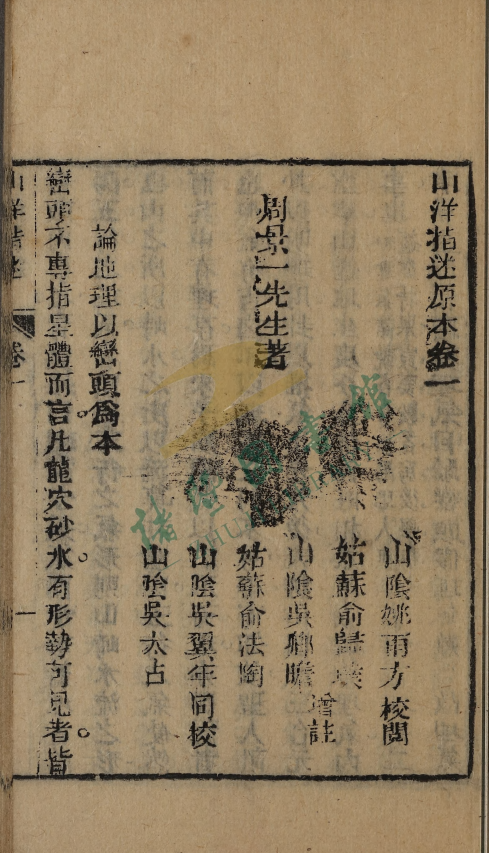 山洋指迷原本卷一
周景一先生著
山隂姚雨方校閱
姑蘇俞歸璞
山隂吳卿瞻
增註
姑蘇俞法陶
山隂吳翼年同校
山隂吳太占
論地理以巒頭爲本
巒頭不專指星體而言凡龍穴砂水有形勢可見者皆
山洋指迷
卷一
一
諸暨圖書館